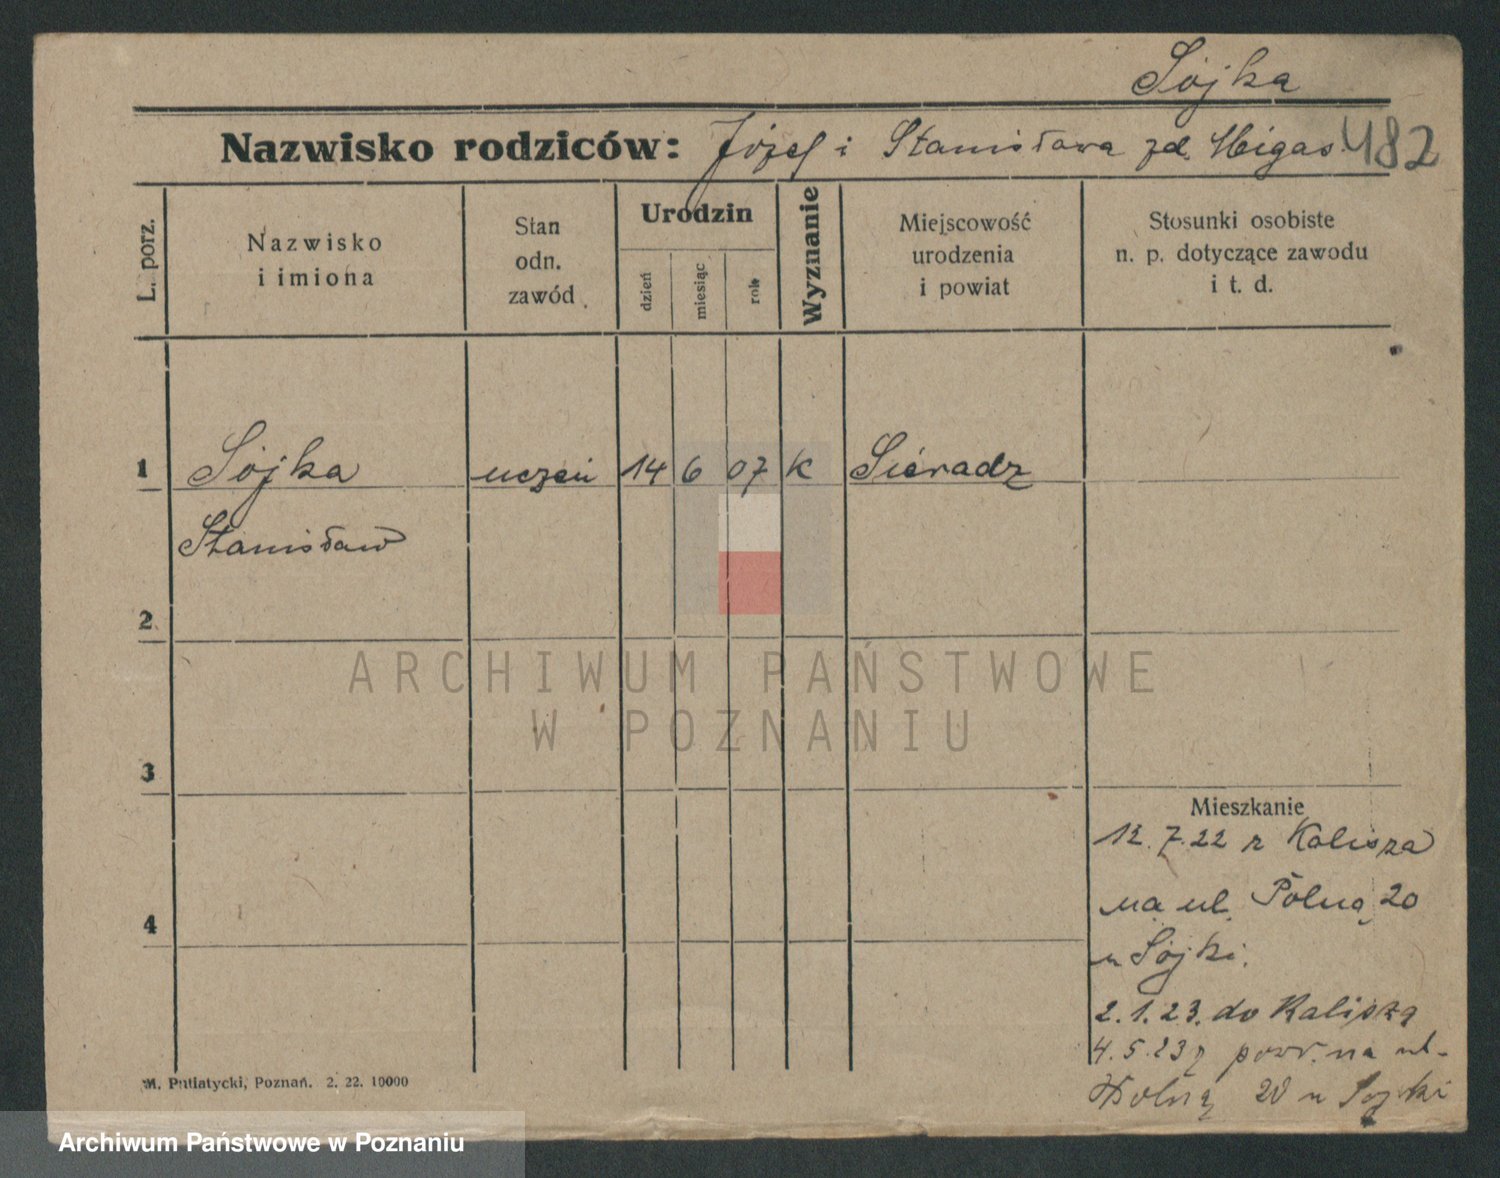 Sójka
Nazwisko rodziców: Józef i Stanisława zd. Migas 482
L. porz.
Nazwisko
i imiona
Stan
odn.
zawód
Urodzin
dzień
miesiąc
rok
Wyznanie
Miejscowość
urodzenia
i powiat
Stosunki osobiste
n. p. dotyczące zawodu
i t. d.
1 Sójka uczeń 14 6 07 K Sieradz
Stanisław
2
ARCHIWUM PAŃSTWOWE
W POZNANIU
3
Mieszkanie
12.7.22 z Kalisza
4 na ul. Polną 20
u Sójki.
2.1.23. do Kalisza
4.5.23 powr. na ul.
Polną 20 u Sójki
M. Putiatycki, Poznań. 2. 22. 10000
Archiwum Państwowe w Poznaniu